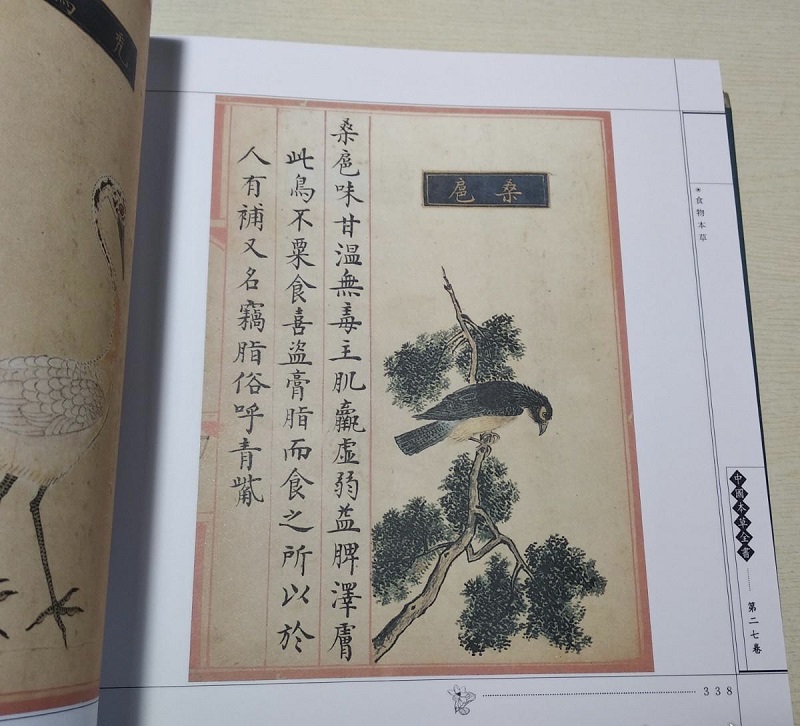 禿
桑扈
桑扈味甘溫無毒主肌羸虛弱益脾澤膚
此鳥不粟食喜盜膏脂而食之所以於
人有補又名竊脂俗呼青觜
食物本草
中國本草全書
第二七卷
338